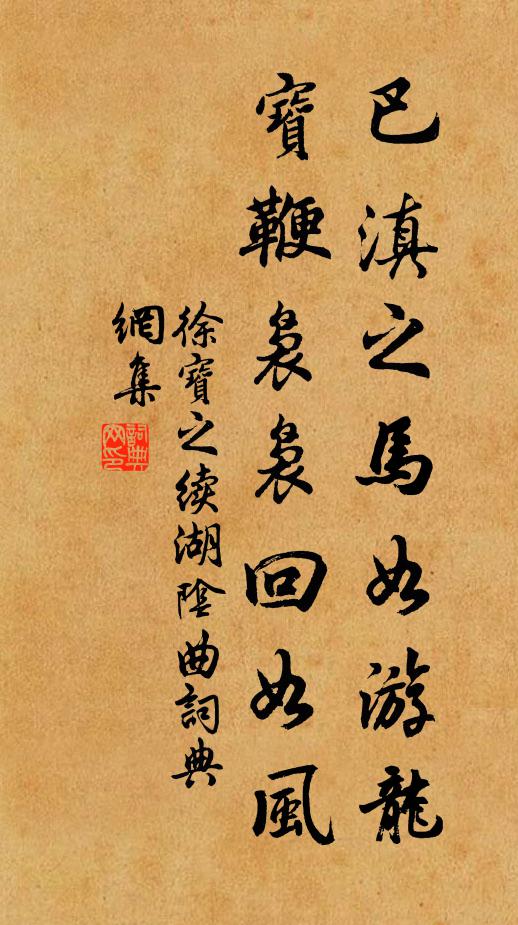 巴滇之馬如游龍
寶鞭裊裊回如風
徐寶之續湖陰曲詞典
網集
詞典
网印